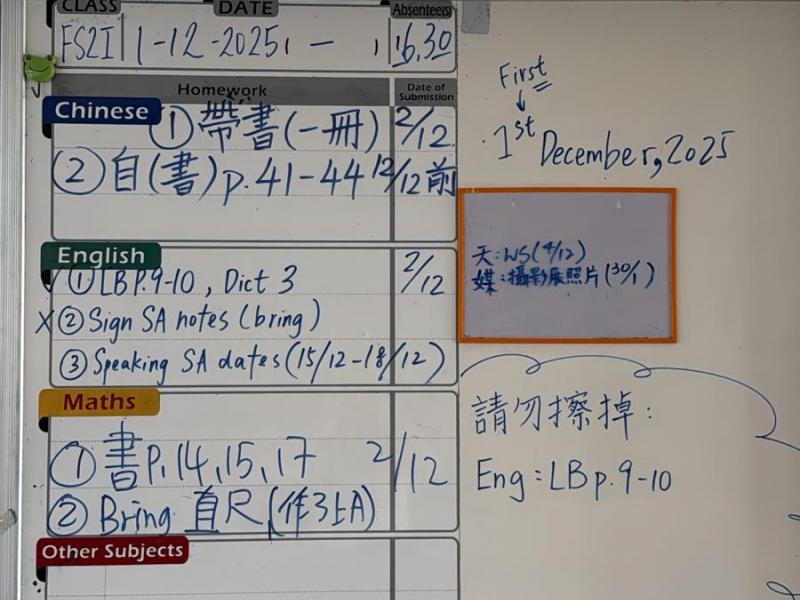 CLASS DATE Absentee(s)
FS2I 1-12-2025 — 16,30
Homework Date of Submission
Chinese
① 帶書(一冊) 2/12
② 自(書)p.41-44 12/12前
English
① LB P.9-10, Dict 3 2/12
② Sign SA notes (bring)
③ Speaking SA dates (15/12-18/12)
Maths
① 書P.14,15,17 2/12
② Bring 直尺(作3上A)
Other Subjects
First
1st December, 2025
天:WS(4/12)
媒:攝影展照片(30/1)
請勿擦掉:
Eng:LB p.9-10